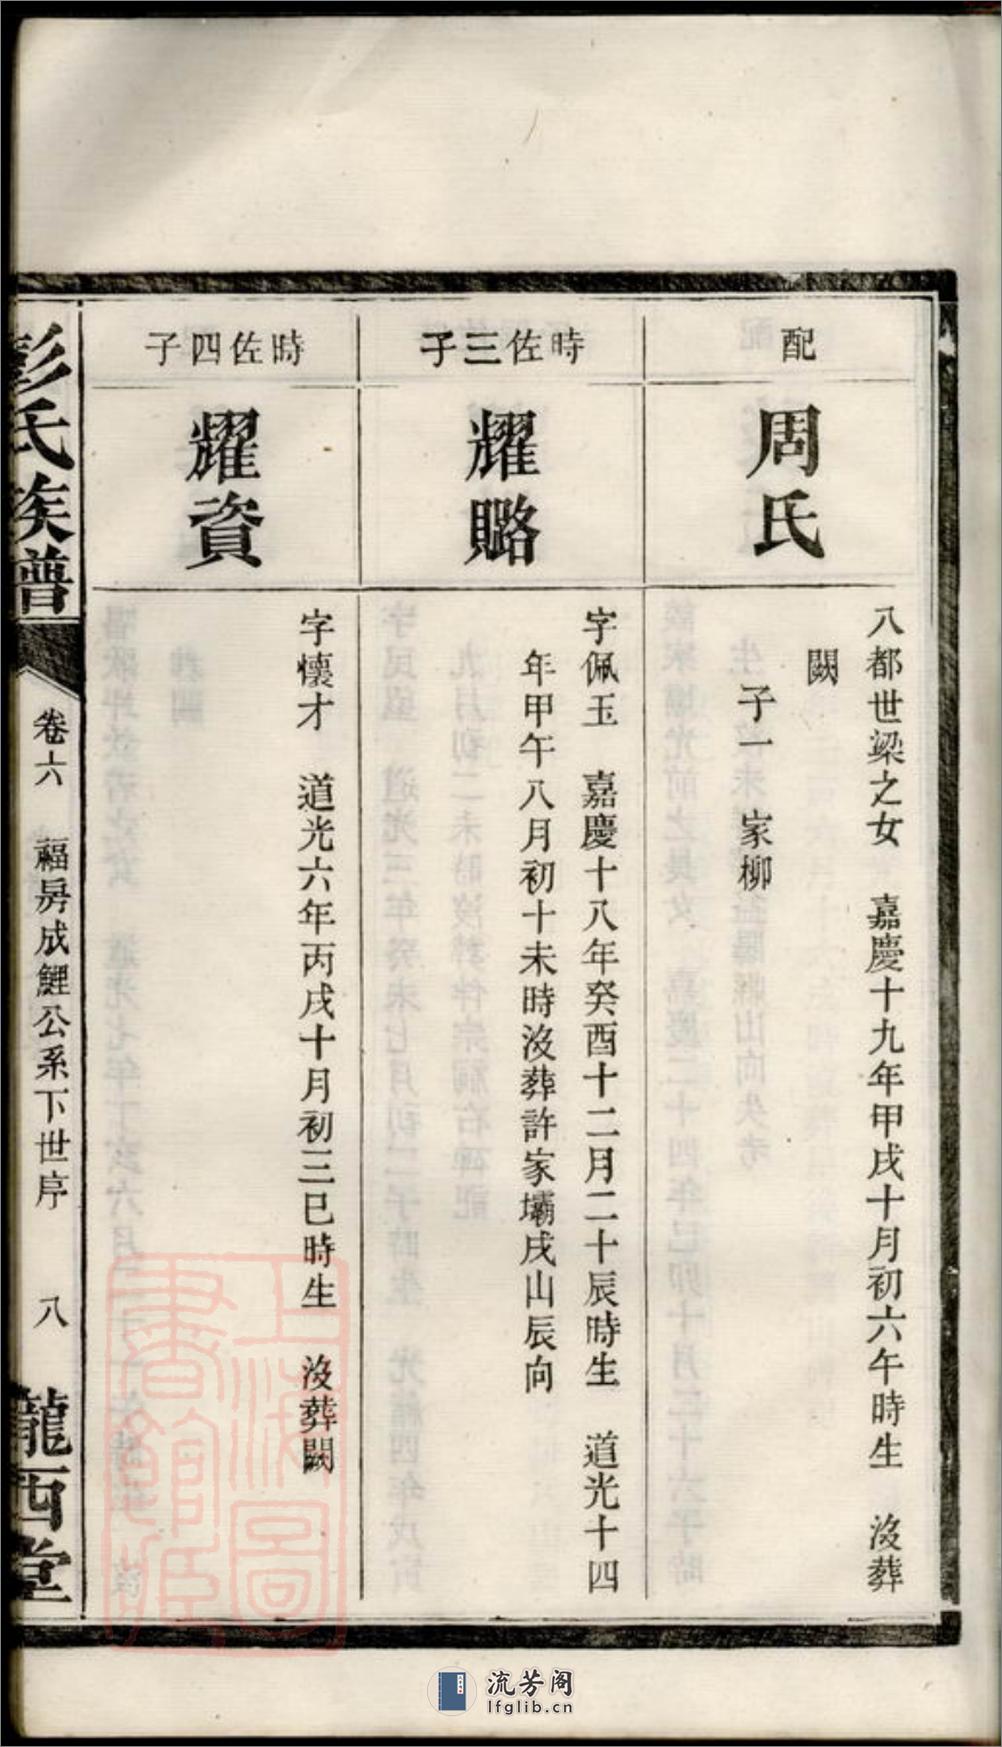 配
周氏
八都世樑之女　嘉慶十九年甲戌十月初六午時生　沒葬
闕
子一　家柳
時佐三子
耀賂
字佩玉　嘉慶十八年癸酉十二月二十辰時生　道光十四
年甲午八月初十未時沒葬許家壩戌山辰向
時佐四子
耀資
字懷才　道光六年丙戌十月初三巳時生　沒葬闕
彭氏族譜
卷六　福房成鯉公系下世序　八
龍西堂
上海圖書館藏
流芳阁
lfglib.cn